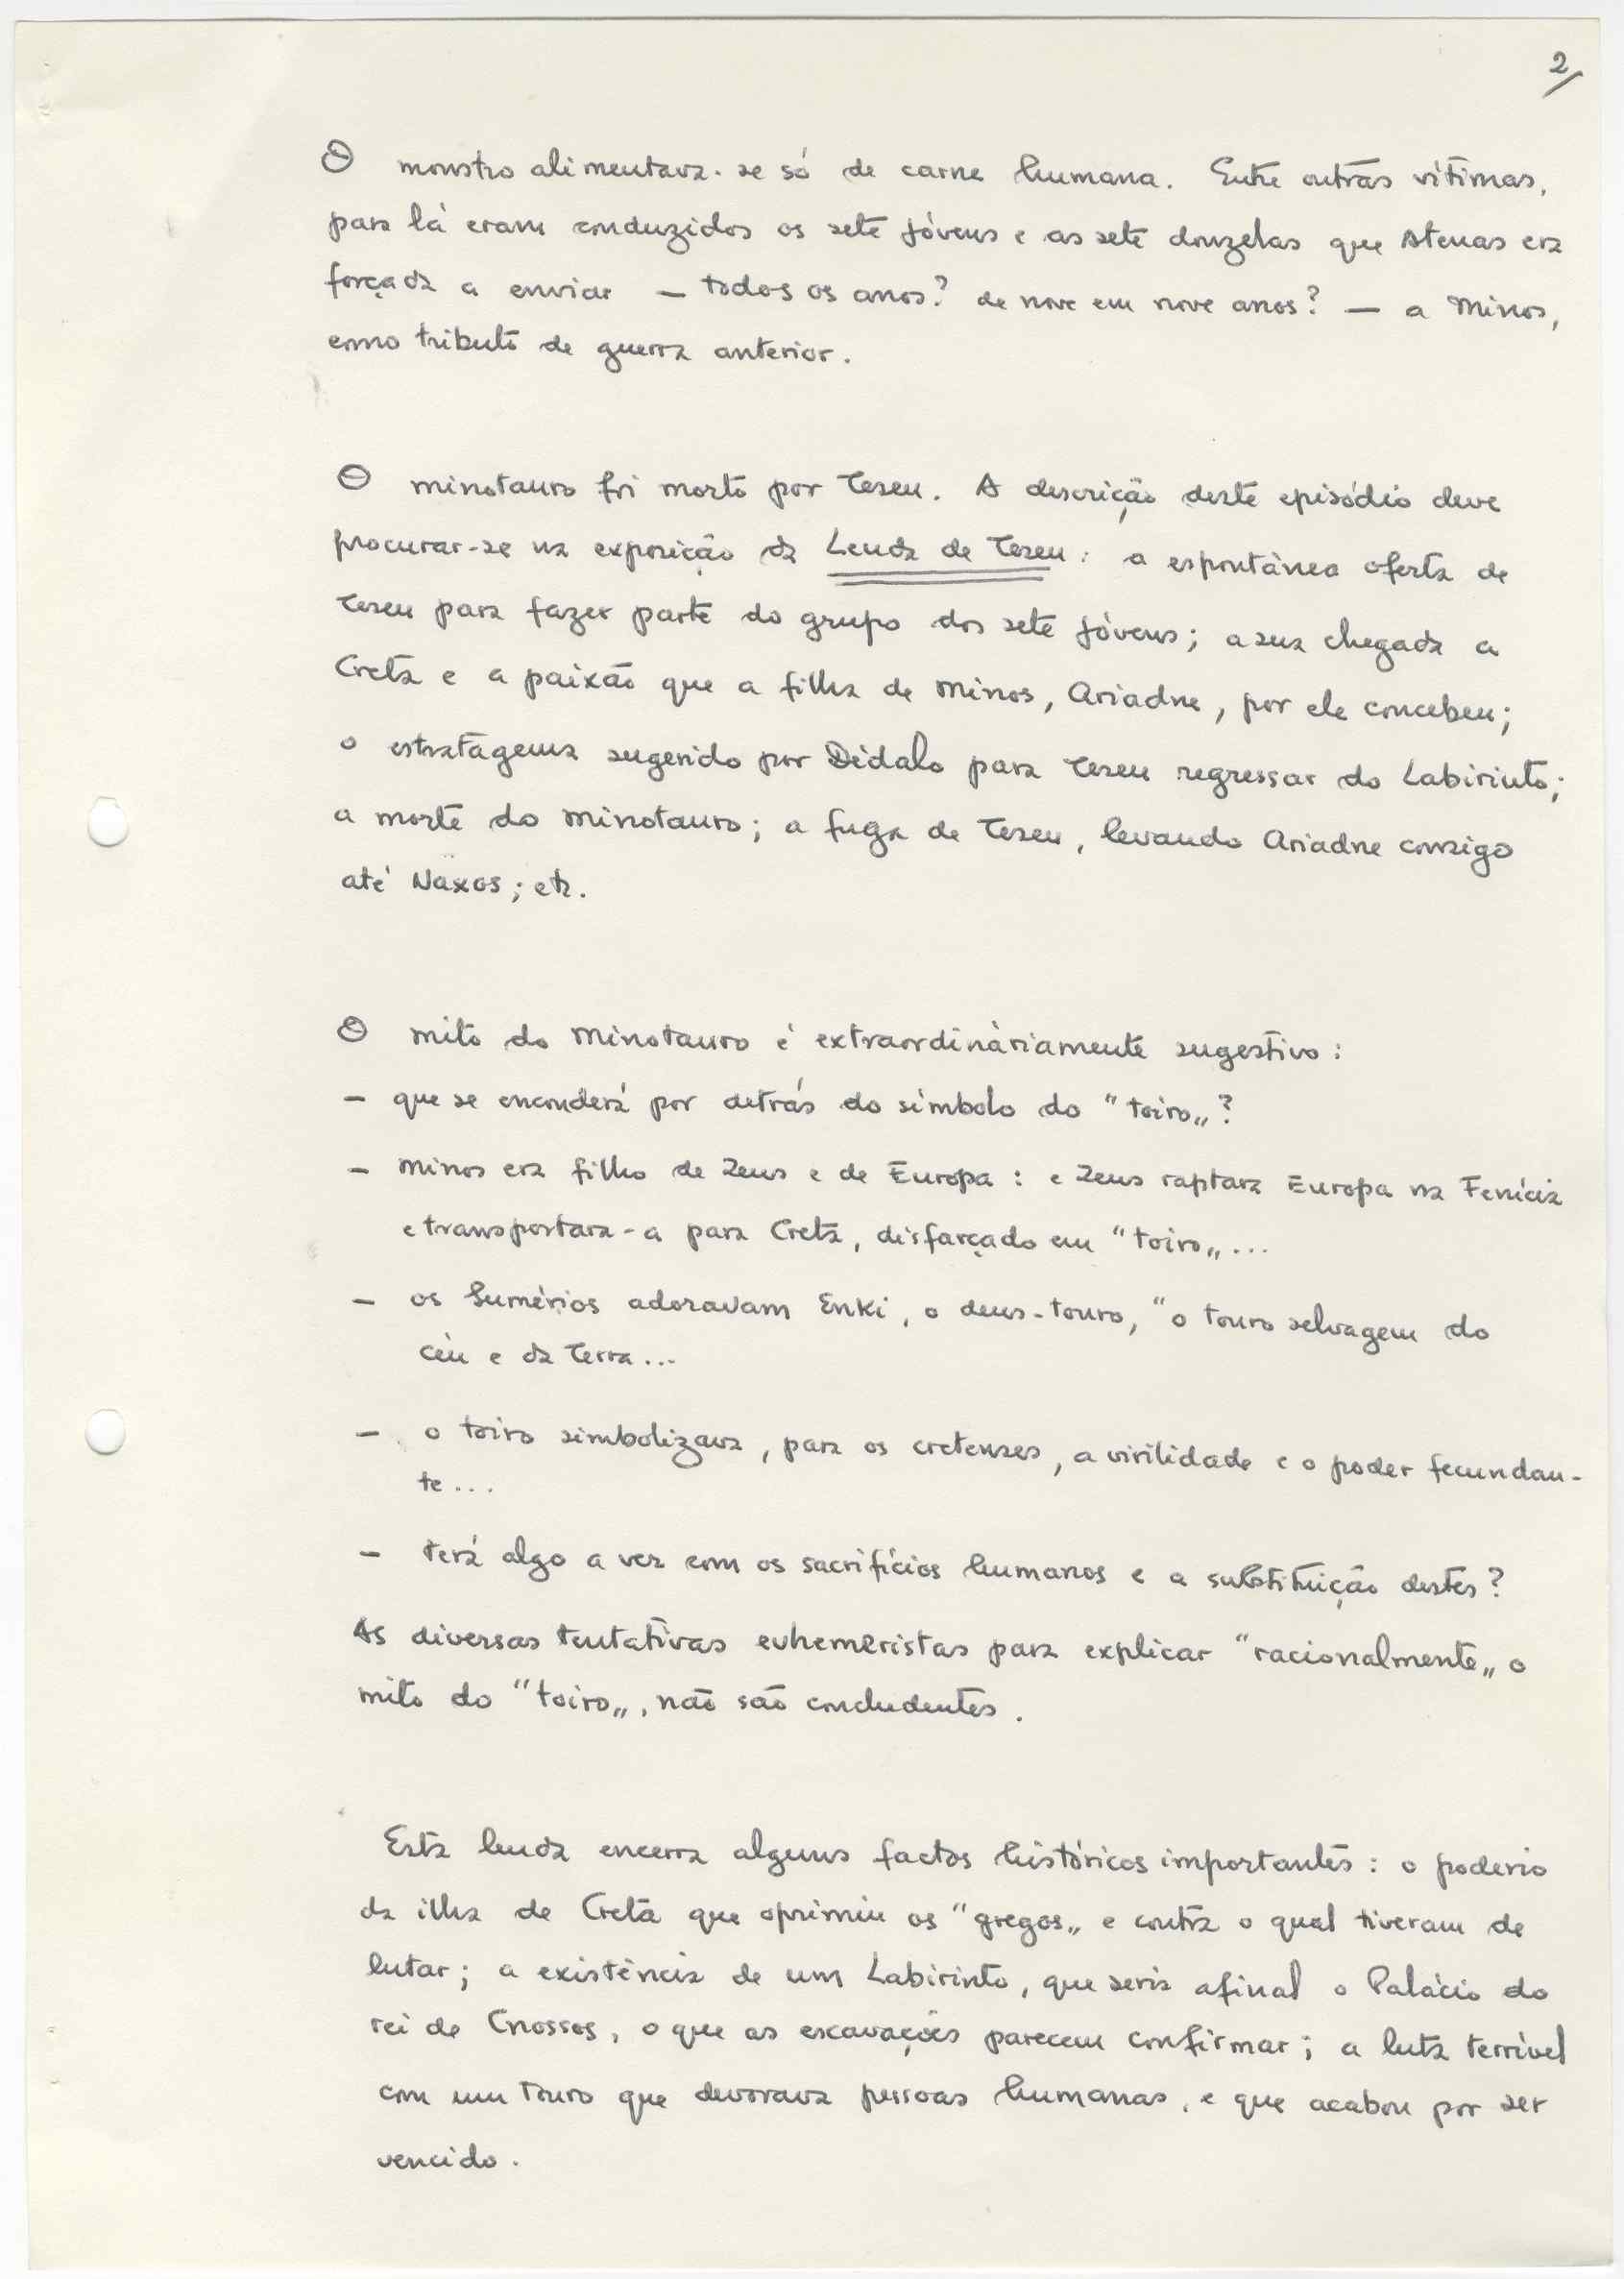 2/
O monstro alimentava-se só de carne humana. Entre outras vítimas,
para lá eram conduzidos os sete jóvens e as sete donzelas que Atenas era
forçada a enviar — todos os anos? de nove em nove anos? — a Minos,
como tributo de guerra anterior.
O minotauro foi morto por Teseu. A descrição deste episódio deve
procurar-se na exposição da Lenda de Teseu: a espontânea oferta de
Teseu para fazer parte do grupo dos sete jóvens; a sua chegada a
Creta e a paixão que a filha de Minos, Ariadne, por ele concebeu;
o estratagema sugerido por Dédalo para Teseu regressar do Labirinto;
a morte do Minotauro; a fuga de Teseu, levando Ariadne consigo
até Naxos; etc.
O mito do Minotauro é extraordinàriamente sugestivo:
— que se esconderá por detrás do símbolo do "toiro"?
— Minos era filho de Zeus e de Europa: e Zeus raptara Europa na Fenícia
e transportara-a para Creta, disfarçado em "toiro"...
— os Sumérios adoravam Enki, o deus-touro, "o touro selvagem do
céu e da Terra...
— o toiro simbolizava, para os cretenses, a virilidade e o poder fecundan-
te...
— terá algo a ver com os sacrifícios humanos e a substituição destes?
As diversas tentativas evhemeristas para explicar "racionalmente" o
mito do "toiro", não são concludentes.
Esta lenda encerra alguns factos históricos importantes: o poderio
da ilha de Creta que oprimiu os "gregos" e contra o qual tiveram de
lutar; a existência de um Labirinto, que seria afinal o Palácio do
rei de Cnossos, o que as escavações parecem confirmar; a luta terrível
com um touro que devorava pessoas humanas, e que acabou por ser
vencido.